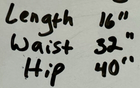 Length 16"
Waist 32"
Hip 40"